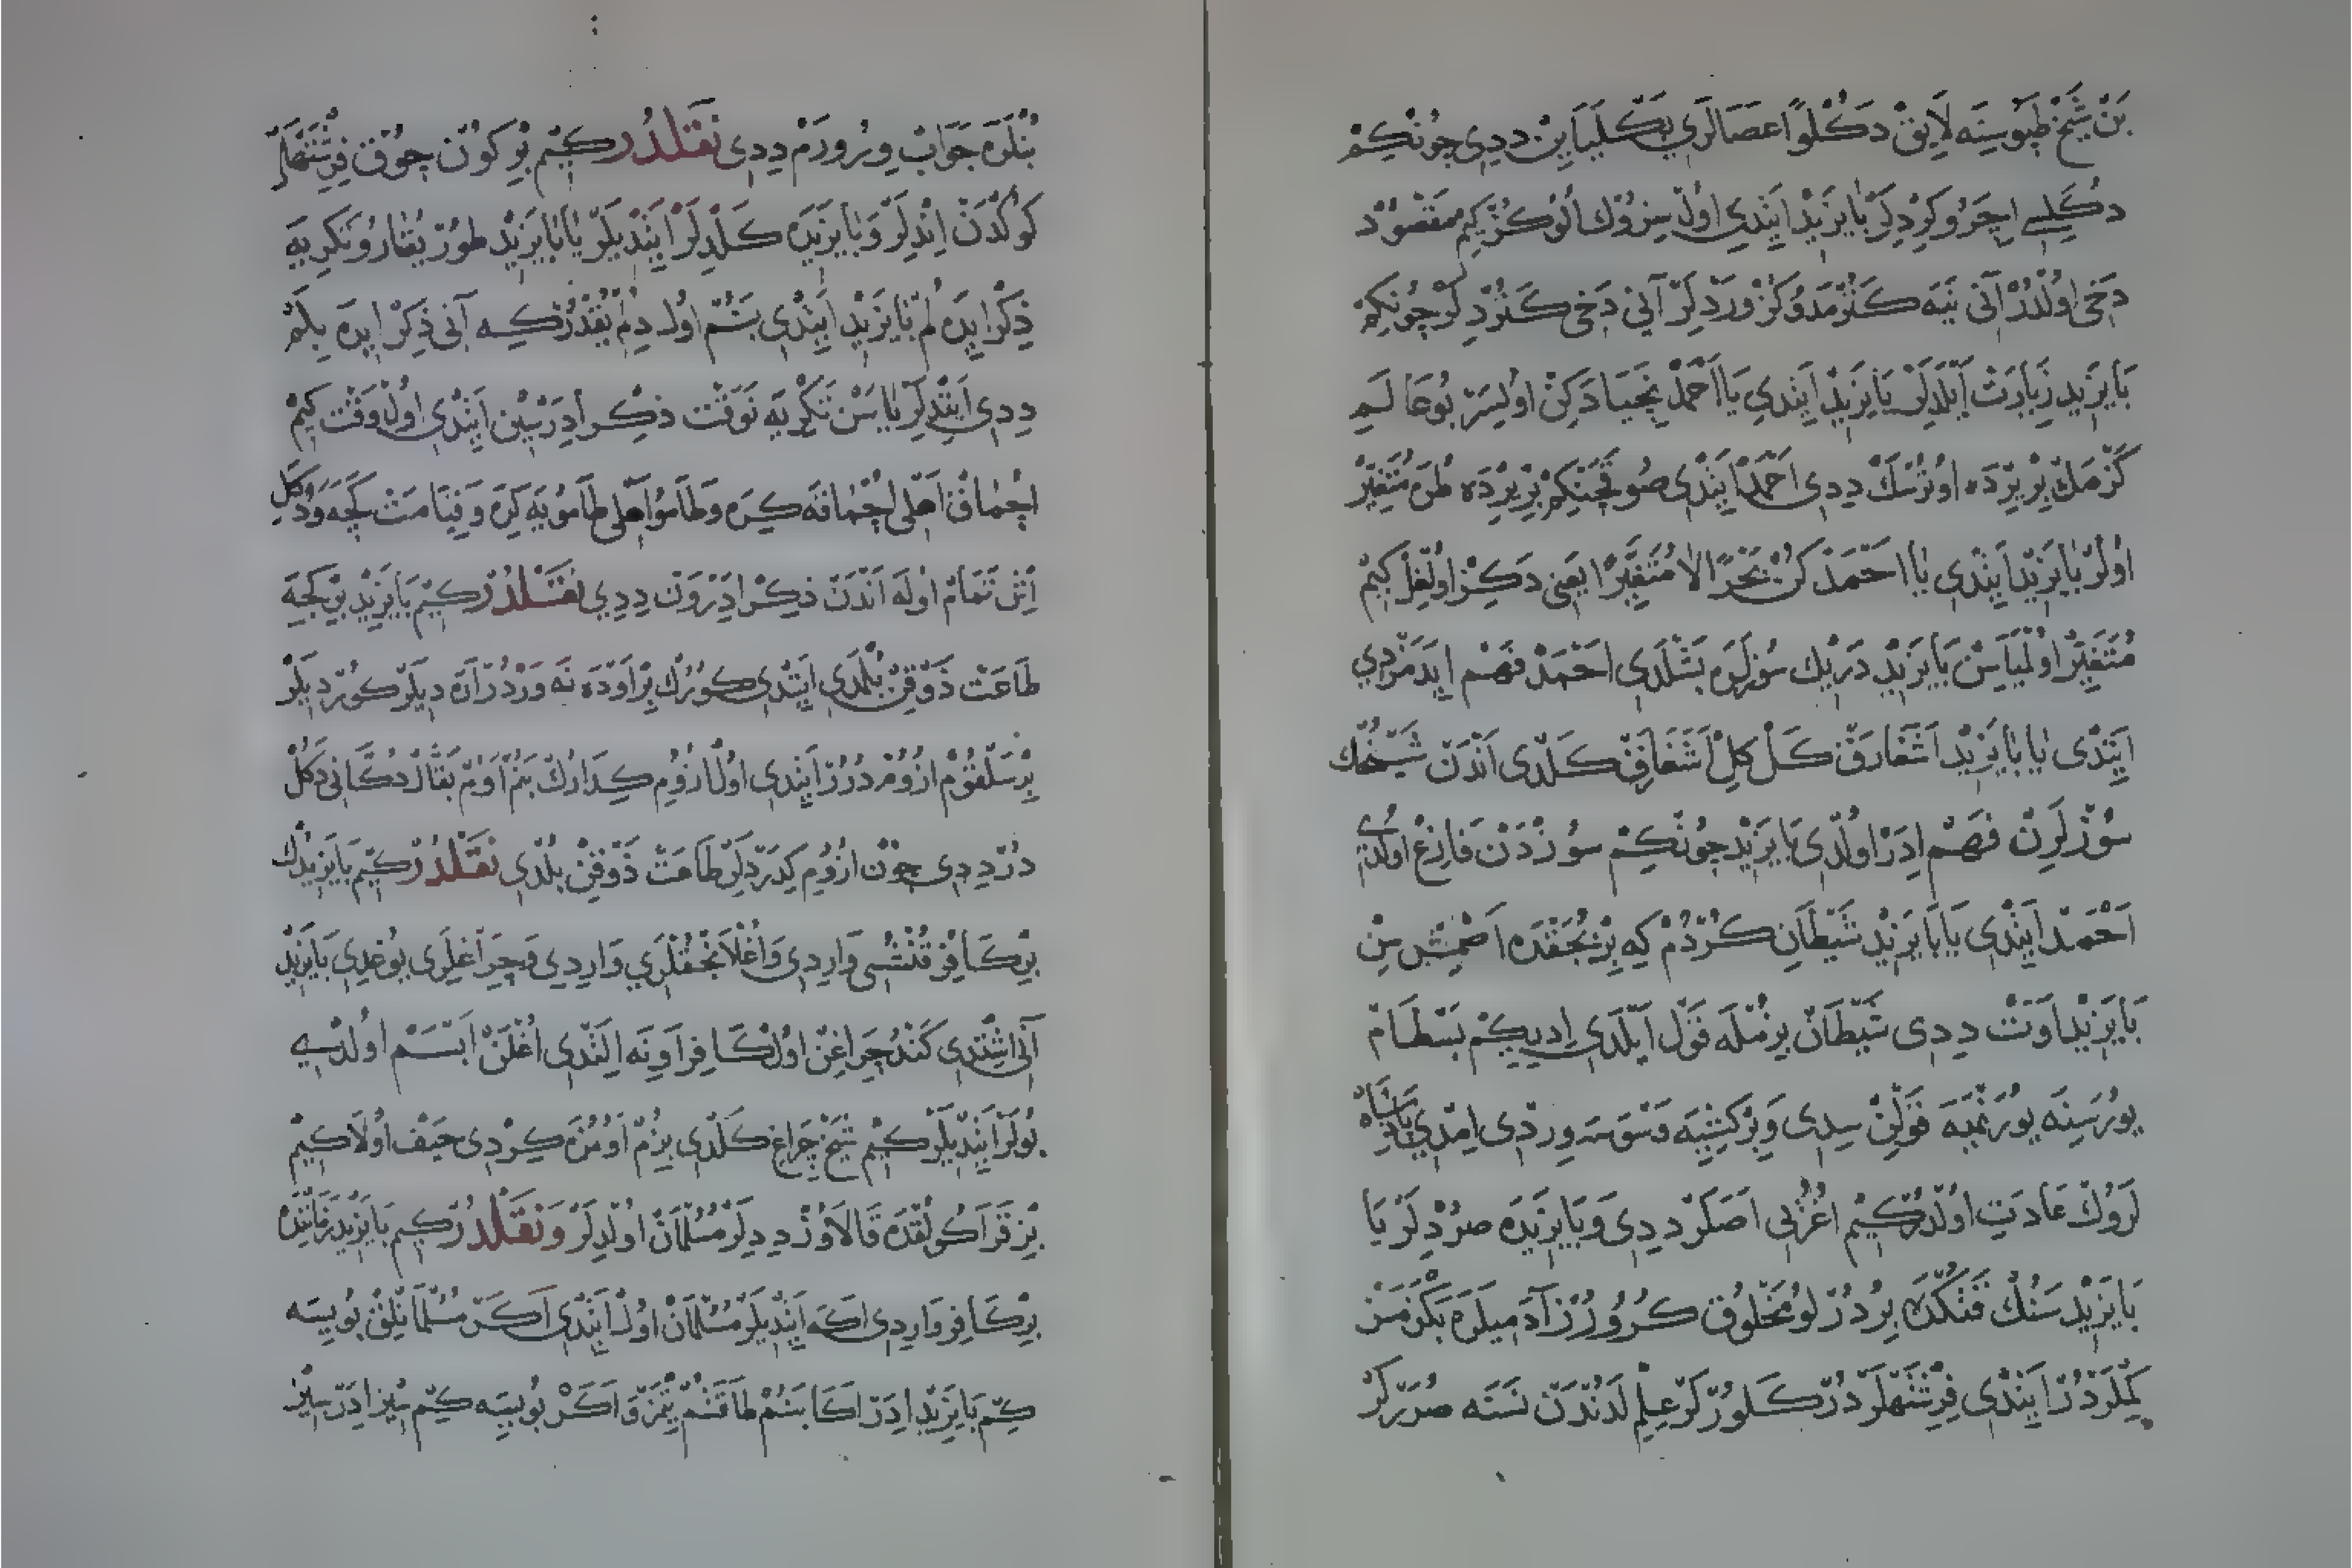 بن شیخ طپوسنه لایق دکلوا عصالری بکلیاین ددی چونکم
دکلی ایچرو کردلر بایزید ایتدی اول سزوک الوکز کم مقصود
دخی اولدر آنی نیه کتزمدوکز وردلر آنی دخی کتردلر چونکم
بایزید زیارت ایلدلر بایزید ایتدی یا احمد نجیا دکن اولیسر بو عالم
کزمک بر یرده اوترسک ددی احمد ایتدی صو قچنکم بر یرده طره متغیر
اولر بایزید ایتدی یا احمد کن بحرا لا متغیرا یعنی دکز اولغل کیم
متغیر اولمیاسن بایزید دریك سوزلره بشلدی احمد فهم ایدمزدی
ایتدی یا بایزید اشغارق کل کل اشغارق کلدی اندن شیخک
سوزلرن فهم ادر اولدی بایزید چونکم سوزدن فارغ اولدی
احمد ایتدی یا بایزید شیطان کردم که بر بجقده اصمش سن
بایزید اوت ددی شیطان بزمله قول ایلدی ادیکم بسطام
یورسنه یورغمیه قولن سدی و بر کشیه وسوسه وردی امدی پادشاه
لروک عادت اولدر کیم اغری اصکر ددی و بایزیده صردلر یا
بایزید سنک قتکده بر درلو مخلوق کروروز آدمیلره بکزمز
کملردر ایتدی فرشتهلردر کلورلر علم لدندن نسنه صررلر
بنلره جواب وروردم ددی نقلدر کیم بر کون چوق فرشتهلر
کوکدن اندلر و بایزیده کلدلر ایتدیلر یا بایزید طور یقارو تکریه
ذکر ایده لم بایزید ایتدی بنم اول دلم یقدرکه آنی ذکر ایده بلم
ددی ایتدلر یا سن تکریه نوقت ذکر ادرسن ایتدی اول وقت کیم
اچماق اهلی اچماقه کره و طامو اهلی طامویه کره و قیامت کچه و دکل
اش تمام اوله اندن ذکر ادرون ددی نقلدر کیم بایزید بر کجه
طاعت ذوقن بلمدی ایتدی کورک بر اوده نه وردر آنه دیلر کوردیلر
بر سلقوم ازوم دورر ایتدی اول ازوم کدارک بنم اوم بقال دکانی دکل
در ددی چون ازوم کدردلر طاعت ذوقن بلدی نقلدر کیم بایزیدك
بر کافر قنشسی واردی و اغلانجقلری واردی و چراغلری یوغدی بایزید
آنی اشتدی کندو چراغن اول کافر اونه التدی اغلن ابسم اولدی
بولر ایتدیلر کیم شیخ چراغ کلدی بزم اومزه کردی حیف اولا کیم
بز قراکولقده قالاوز ددلر مسلمان اولدلر و نقلدر کیم بایزید زماننده
بر کافر واردی اکه ایتدیلر مسلمان اول ایتدی اکر مسلمانلق بویسه
کم بایزید ادر اکا بنم طاقتم یتمز و اکر بویسه کم سیز ادرسیز